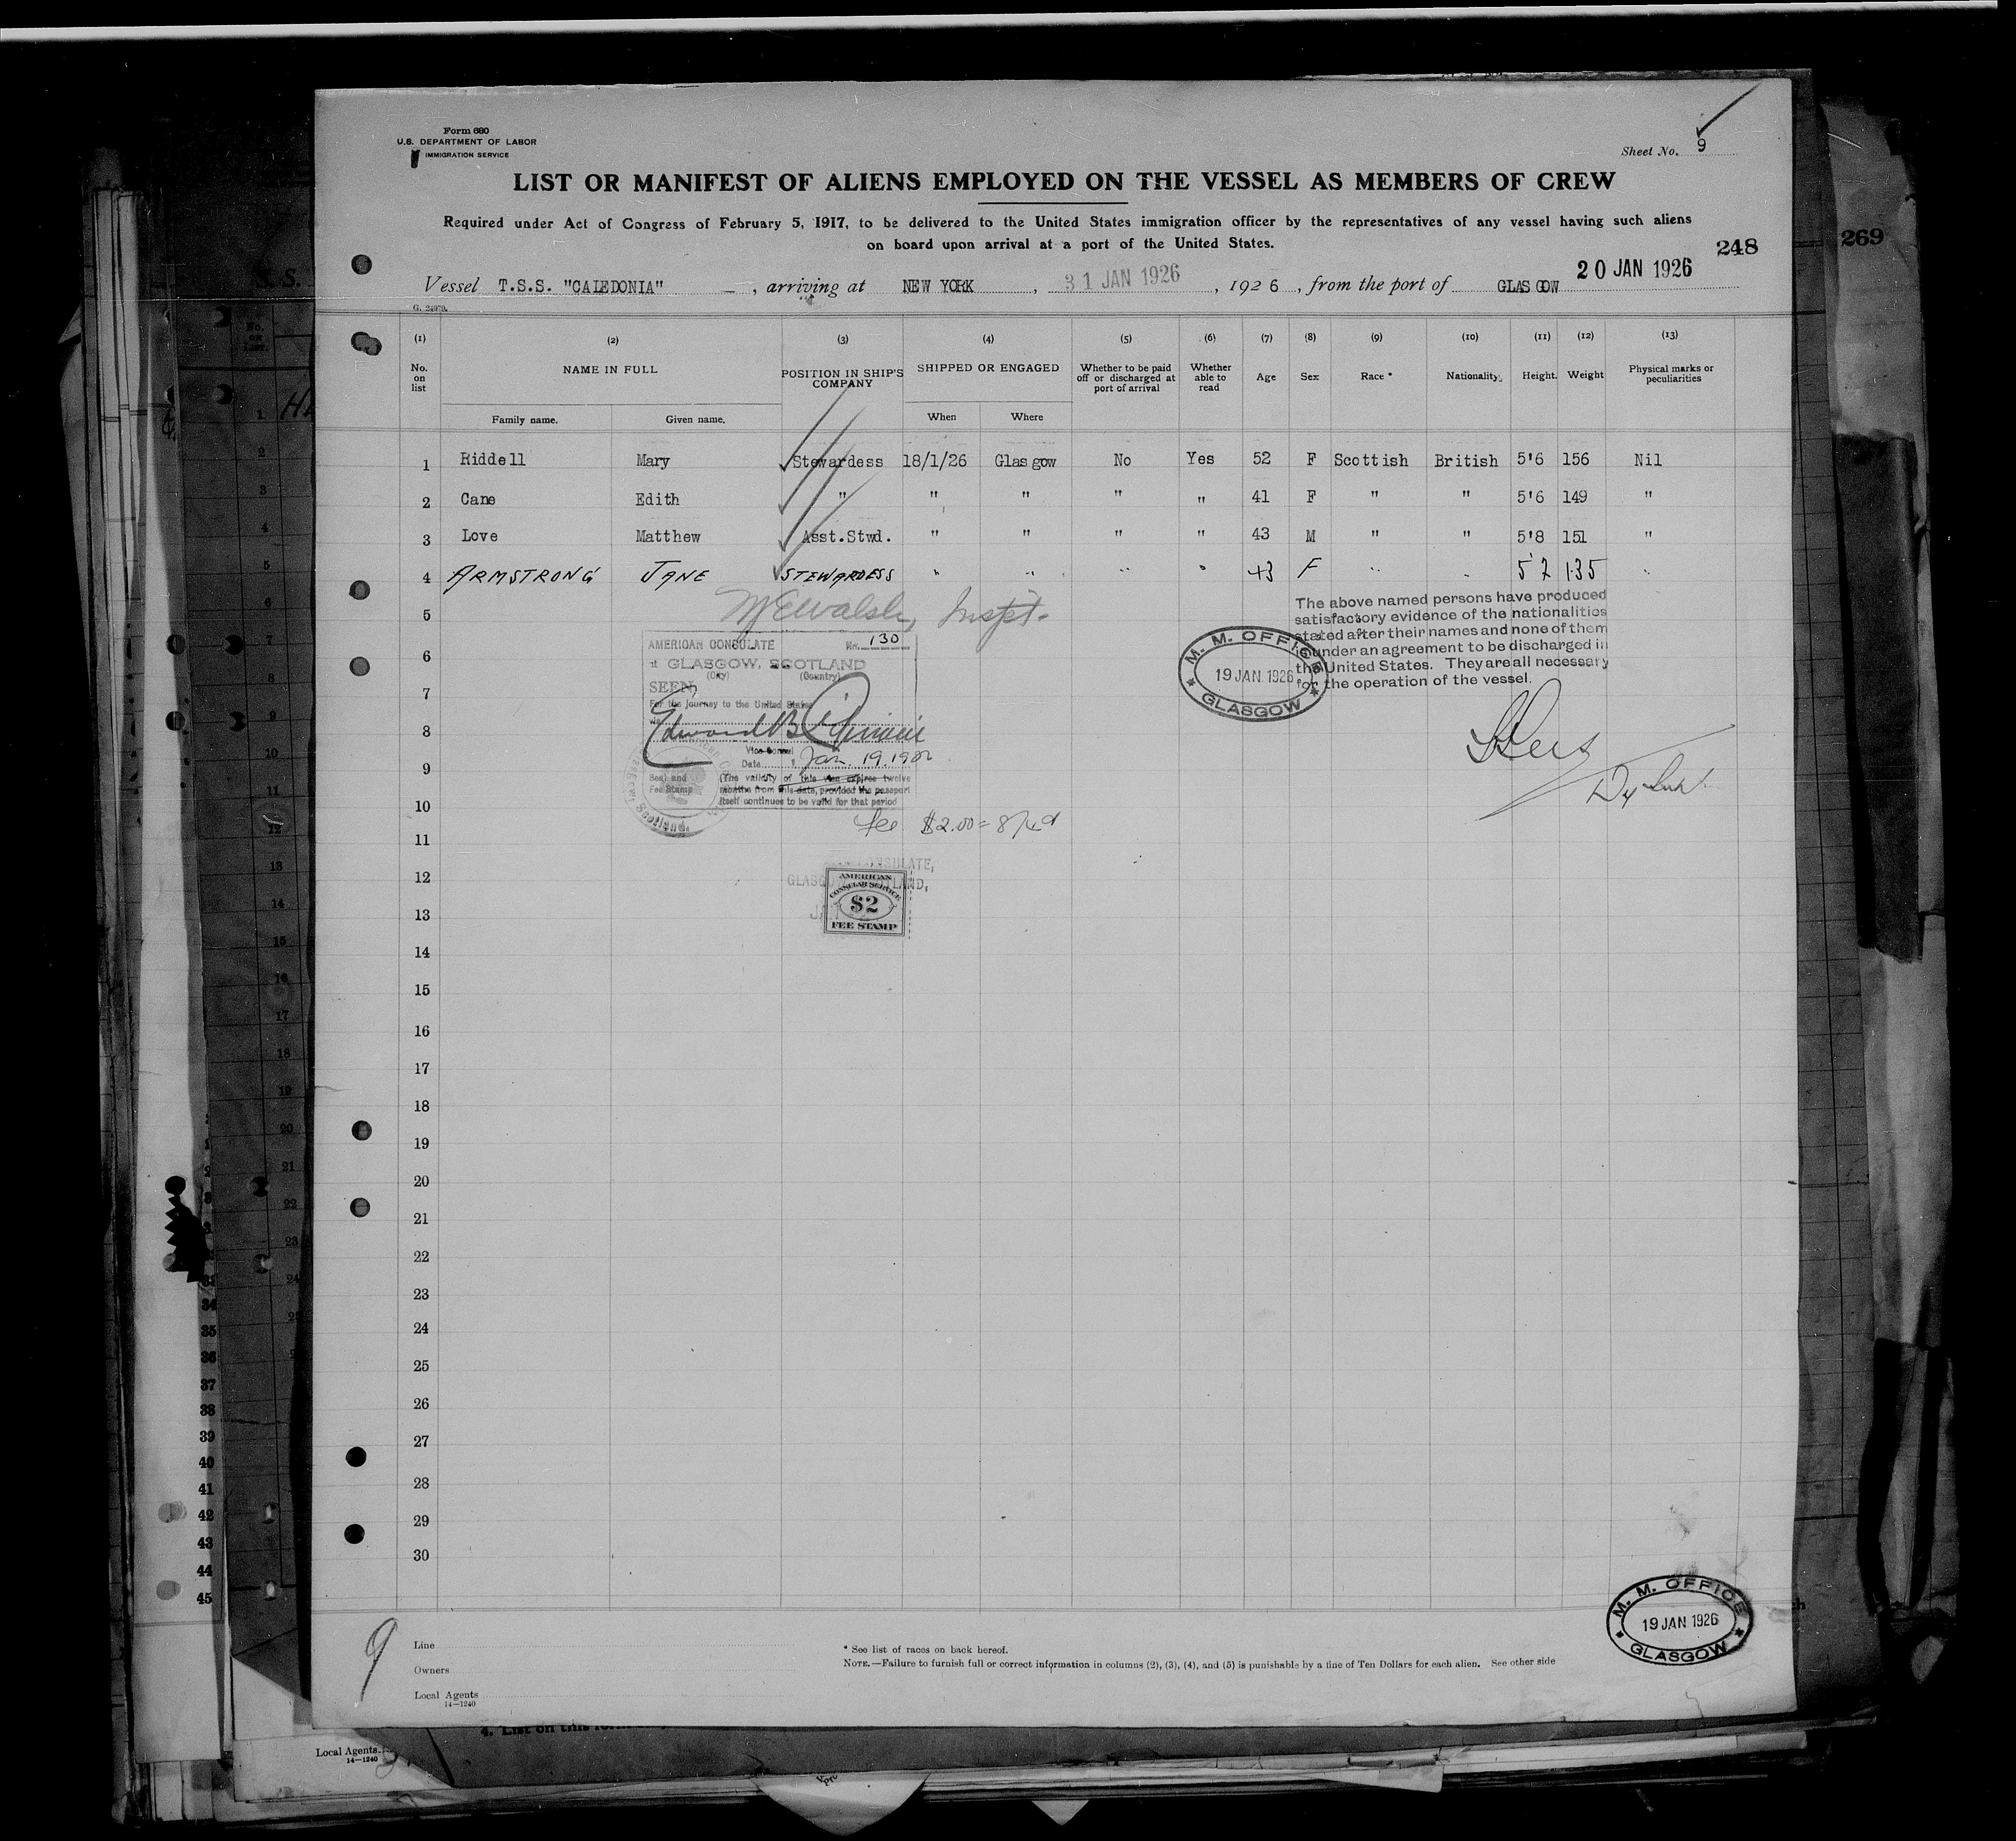 Form 680
U.S. DEPARTMENT OF LABOR
IMMIGRATION SERVICE
Sheet No. 9
LIST OR MANIFEST OF ALIENS EMPLOYED ON THE VESSEL AS MEMBERS OF CREW
Required under Act of Congress of February 5, 1917, to be delivered to the United States immigration officer by the representatives of any vessel having such aliens
on board upon arrival at a port of the United States.
248
269
20 JAN 1926
Vessel T.S.S. "CALEDONIA", arriving at NEW YORK, 31 JAN 1926, 1926, from the port of GLASGOW
(1) (2) (3) (4) (5) (6) (7) (8) (9) (10) (11) (12) (13)
No. on list NAME IN FULL POSITION IN SHIP'S COMPANY SHIPPED OR ENGAGED Whether to be paid off or discharged at port of arrival Whether able to read Age Sex Race * Nationality. Height. Weight Physical marks or peculiarities
Family name. Given name. When Where
1 Riddell Mary Stewardess 18/1/26 Glasgow No Yes 52 F Scottish British 5'6 156 Nil
2 Cane Edith " " " " " 41 F " " 5'6 149 "
3 Love Matthew Asst.Stwd. " " " " 43 M " " 5'8 151 "
4 ARMSTRONG JANE STEWARDESS " " " " 43 F " " 5'2 135 "
The above named persons have produced
satisfactory evidence of the nationalities
stated after their names and none of them
is under an agreement to be discharged in
the United States. They are all necessary
for the operation of the vessel.
M. M. OFFICE
19 JAN. 1926
GLASGOW
5
6
7
8
9
10
11
12
13
14
15
16
17
18
19
20
21
22
23
24
25
26
27
28
29
30
AMERICAN CONSULATE No. 130
at GLASGOW, SCOTLAND
(City) (Country)
SEEN
For the journey to the United States
Edward B.
Vice Consul
Date Jan. 19, 192
Seal and
Fee Stamp
(The validity of this visa expires twelve
months from this date, provided the passport
itself continues to be valid for that period
Scotland.
fee $2.00 =
CONSULATE,
AMERICAN
CONSULAR SERVICE
$2
FEE STAMP
M. M. OFFICE
19 JAN 1926
GLASGOW
9
Line
Owners
Local Agents
14—1240
* See list of races on back hereof.
NOTE.—Failure to furnish full or correct information in columns (2), (3), (4), and (5) is punishable by a fine of Ten Dollars for each alien. See other side
Local Agents
14—1240